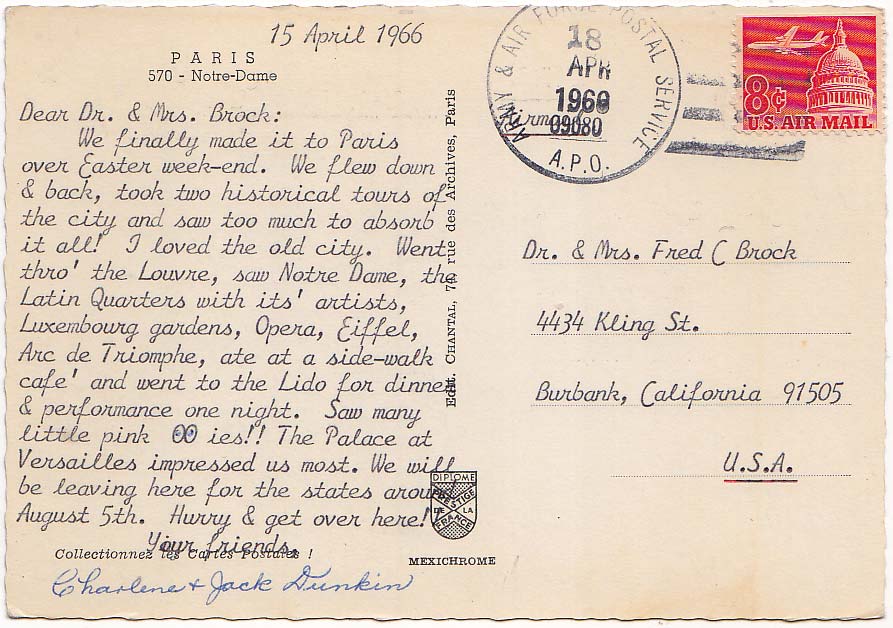 15 April 1966
PARIS
570 - Notre-Dame
Dear Dr. & Mrs. Brock:
We finally made it to Paris
over Easter week-end. We flew down
& back, took two historical tours of
the city and saw too much to absorb
it all! I loved the old city. Went
thro' the Louvre, saw Notre Dame, the
Latin Quarters with its' artists,
Luxembourg gardens, Opera, Eiffel,
Arc de Triomphe, ate at a side-walk
cafe' and went to the Lido for dinner
& performance one night. Saw many
little pink OO ies!! The Palace at
Versailles impressed us most. We will
be leaving here for the states around
August 5th. Hurry & get over here!
Your friends,
Collectionnez les Cartes Postales !
Charlene & Jack Dunkin
Edit. CHANTAL, 74, rue des Archives, Paris
DIPLOME
PRESTIGE
DE LA
FRANCE
MEXICHROME
ARMY & AIR FORCE POSTAL SERVICE
18
APR
1966
09080
A.P.O.
Airmail
8¢
U.S. AIR MAIL
Dr. & Mrs. Fred C Brock
4434 Kling St.
Burbank, California 91505
U.S.A.